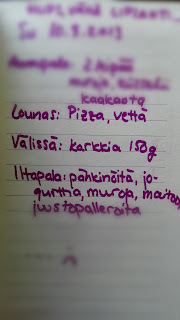 Su 10.3.2013
Aamupala: 2 leipää
muroja,
kaakaota
Lounas: Pizza, vettä
Välissä: karkkia 150g
Iltapala: pähkinöitä, jo-
gurttia, muroja, maitoa,
juustopalleroita